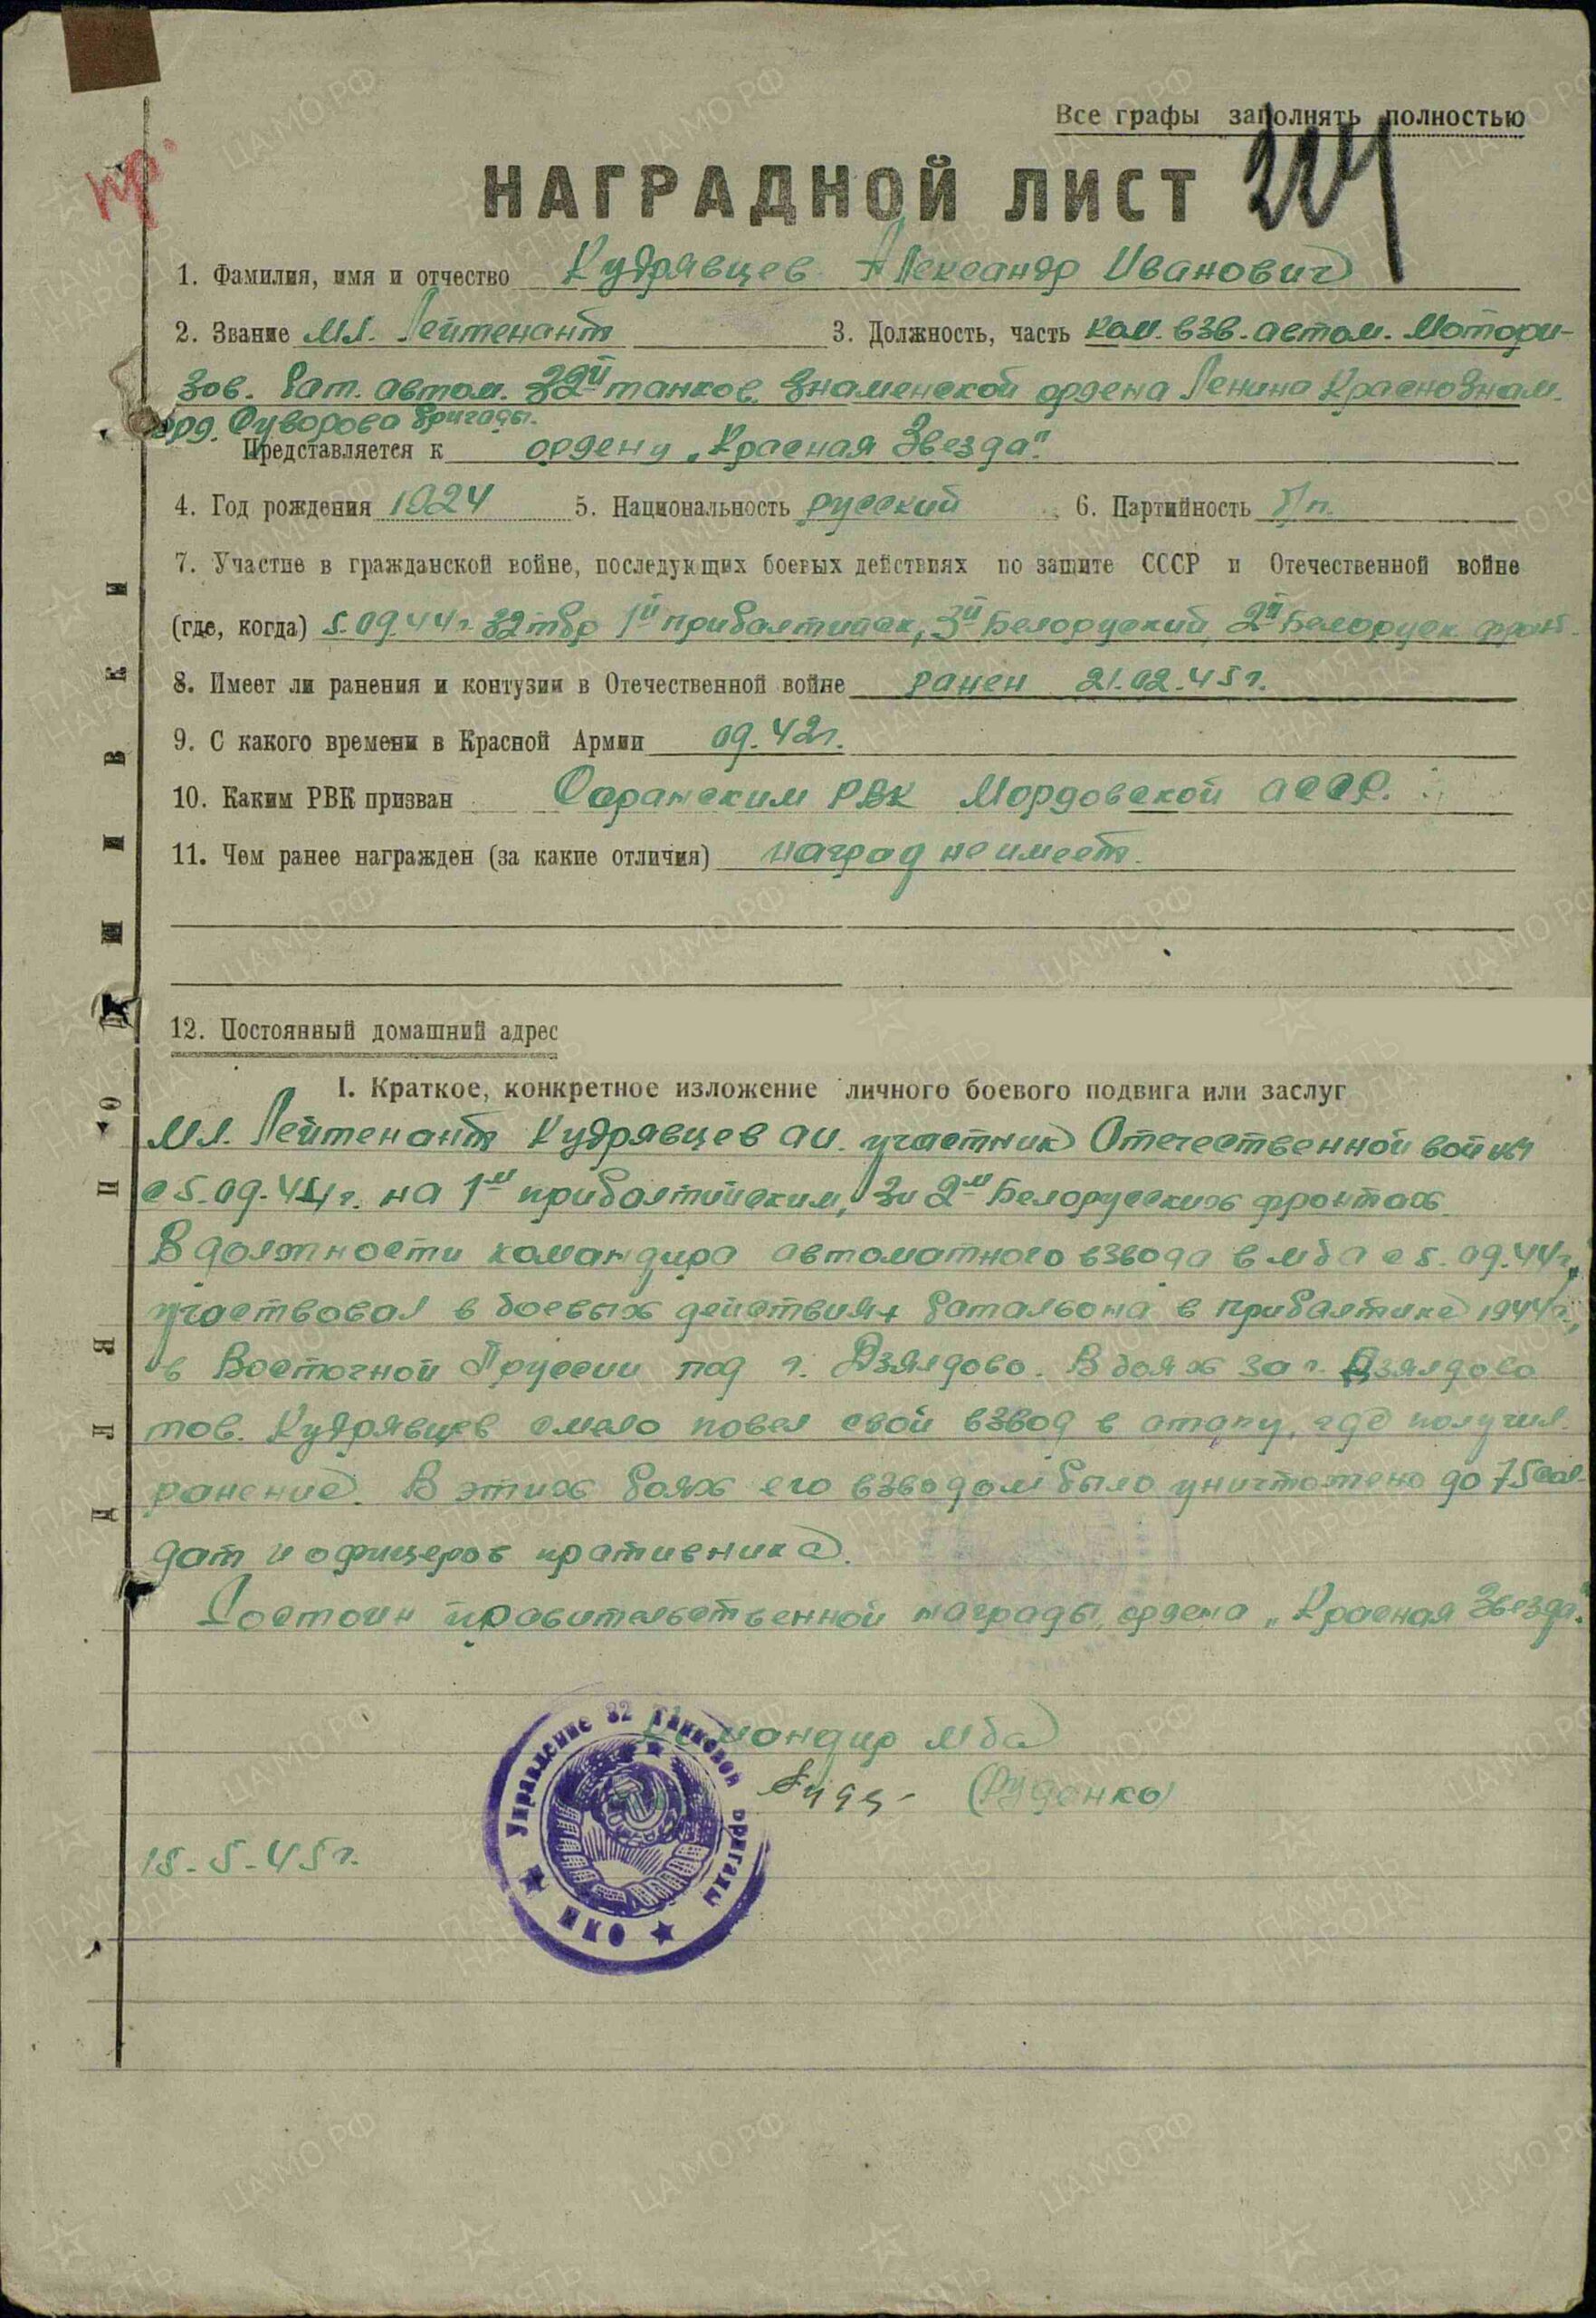 Все графы заполнять полностью
НАГРАДНОЙ ЛИСТ
1. Фамилия, имя и отчество Кудрявцев Александр Иванович
2. Звание Мл. Лейтенант 3. Должность, часть Ком. взв. автом. Мотори-
зов. бат. автом. 32й танков. Знаменской ордена Ленина Краснознам.
орд. Суворова бригады.
Представляется к ордену „Красная Звезда".
4. Год рождения 1924 5. Национальность русский 6. Партийность б/п.
7. Участие в гражданской войне, последующих боевых действиях по защите СССР и Отечественной войне
(где, когда) 5.09.44 г. 32 тбр 1й прибалтийск, 3й Белоруский, 2й Белоруск фронт.
8. Имеет ли ранения и контузии в Отечественной войне ранен 21.02.45 г.
9. С какого времени в Красной Армии 09.42 г.
10. Каким РВК призван Саранским РВК Мордовской АССР.
11. Чем ранее награжден (за какие отличия) наград не имеет.
12. Постоянный домашний адрес
I. Краткое, конкретное изложение личного боевого подвига или заслуг
Мл. Лейтенант Кудрявцев А И. участник Отечественной войны
с 5.09.44 г. на 1м прибалтийским, 3 и 2м Белорусских фронтах
В должности командира автоматного взвода в мба с 5.09.44 г.,
участвовал в боевых действиях батальона в прибалтике 1944 г.,
в Восточной Пруссии под г. Дзялдово. В боях за г. Дзялдово
тов. Кудрявцев смело повел свой взвод в атаку, где получил
ранение. В этих боях его взводом было уничтожено до 75 сол
дат и офицеров пративника.
Достоин правительственной награды, ордена „Красная Звезда".
Командир мба
(Руденко)
15-5-45 г.
Управление 32 танковой бригады
НКО
Для подшивки